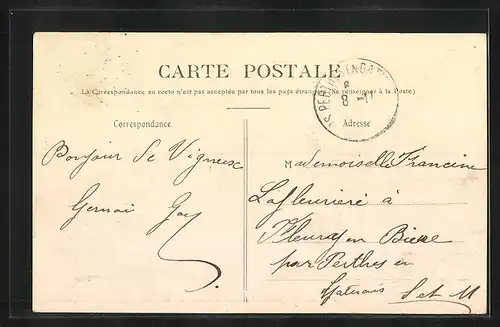 CARTE POSTALE
(La Correspondance au recto n'est pas acceptée par tous les pays étrangers (Se renseigner à la Poste)
8 -11
Correspondance
Adresse
Bonjour de Vigneux
Mademoiselle Francine
Lafleurière à
Fleury en Bière
par Perthes en
Gatinais S et M